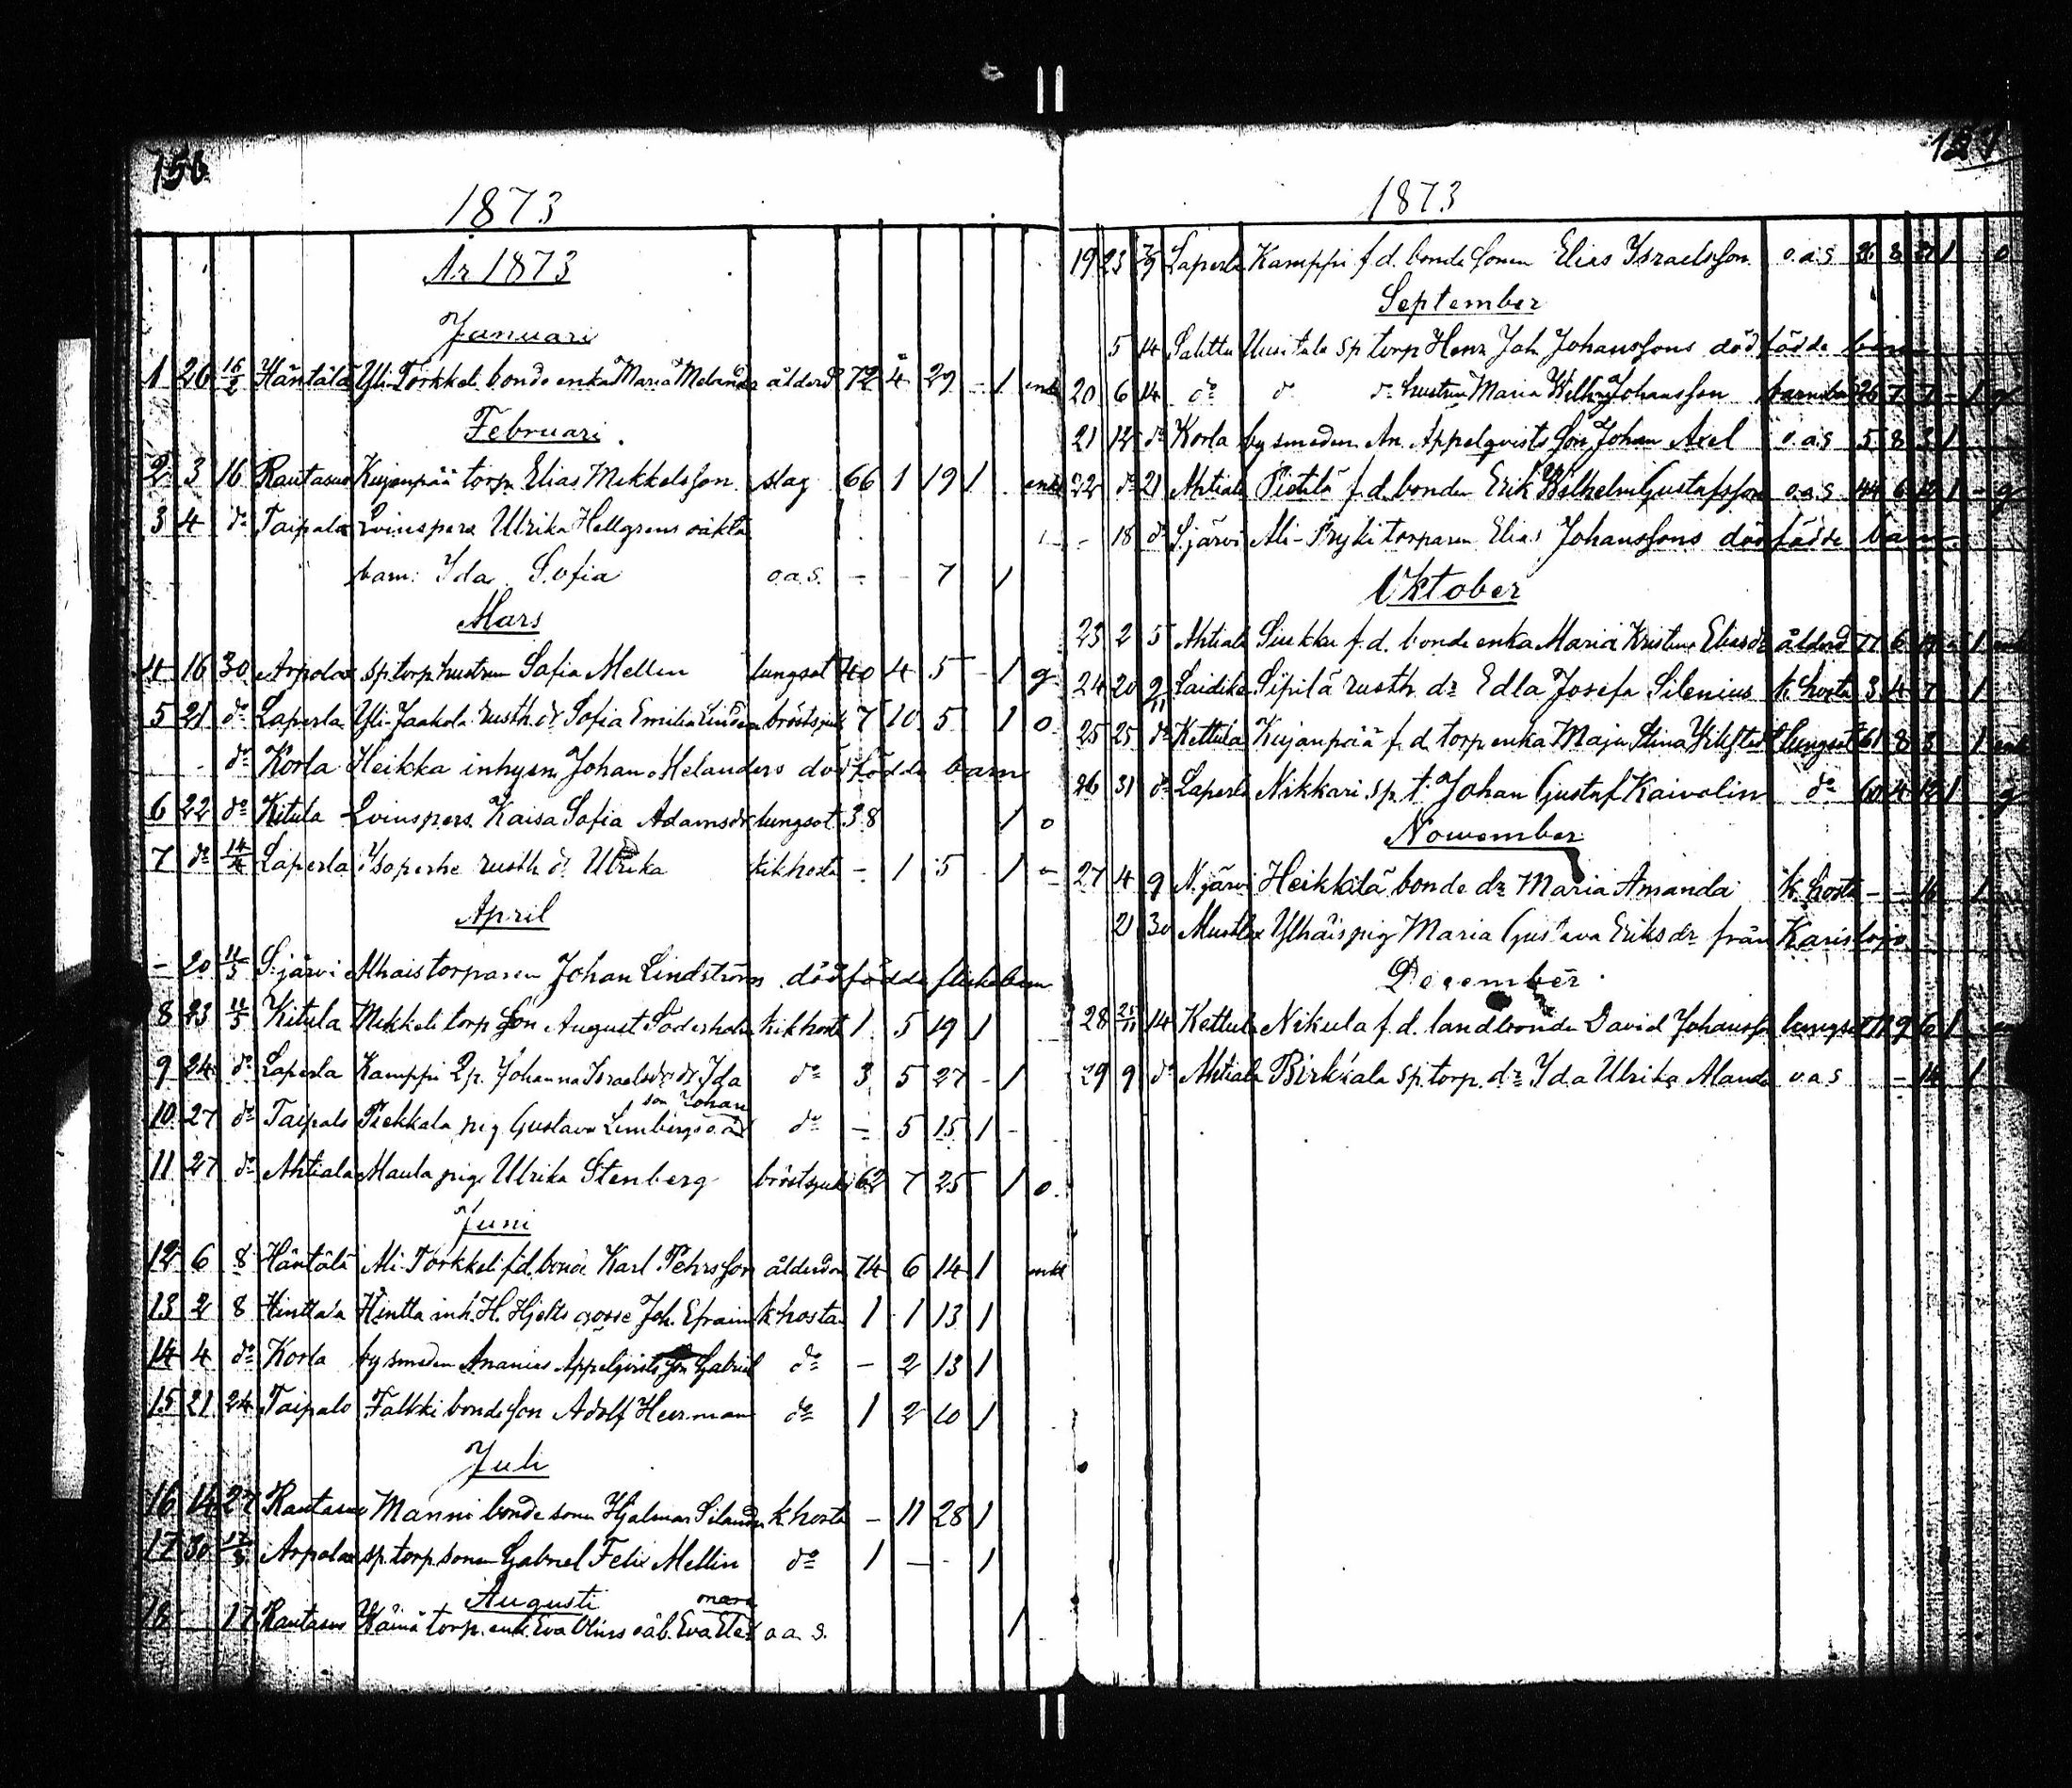 156
1873
År 1873
Januari
1 26 16/2 Häntälä Yli-Törkkeli bonde enka Maria Melander ålderd 72 4 29 - 1 enk
Februari.
2 3 16 Rautasuo Kujanpää torp. Elias Mikkelsson slag 66 1 19 1 enk
3 4 do Taipale Qvinspers Ulrika Hellgrens oäkta
barn: Ida Sofia o.a.s. - - 7 1
Mars
4 16 30 Arpola sp torp hustrun Sofia Mellin lungsot 40 4 5 - 1 g
5 21 do Laperla Yli-Jaakola rusth. dr Sofia Emilia bröstsjuk 7 10 5 1 o
do Korla Heikka inhysn Johan Melanders dödfödda barn
6 22 do Kitula Qvinspers. Kaisa Sofia Adamsdr lungsot 38 1 o
7 do 14/4 Laperla Isoperhe rusth. dr Ulrika kikhosta - 1 5 1 -
April
- 20 11/5 S.järvi Alhais torparen Johan Lindströms dödfödda flickebarn
8 23 11/5 Kitula Mikkeli torp son August Söderholm kikhosta 1 5 19 1
9 24 do Laperla Kamppi Johanna Israelsdr dr Ida do 3 5 27 - 1
son Johan
10 27 do Taipale Pekkala pig Gustava Limbergs o.ä do - 5 15 1 -
11 27 do Ahtiala Maula pig Ulrika Stenberg bröstsjuk 62 7 25 1 o.
Juni
12 6 8 Häntälä Ali-Törkkeli f.d. bond Karl Pehrsson ålderdom 74 6 14 1 enkl
13 2 8 Hintta Hintta inh. H. Hjelts gosse Joh. Efraim k hosta 1 1 13 1
14 4 do Korla bysmeden Ananias Appelqvists son Gabriel do - 2 13 1
15 21 24 Taipale Falkki bondeson Adolf Herman do 1 2 10 1
Juli
16 14 27 Rautasuo Manni bonde sonen Hjalmar Silander k. hosta - 11 28 1
17 30 Arpola sp. torp. sonen Gabriel Felix Mellin do 1 - - 1
Augusti
18 17 Rautasuo torp. enk. Eva o.a.s. 1
1873
19 23 Laperla Kamppi f.d. bonde sonen Elias Israelsson o.a.s. 8 1 o
September
5 14 Salittu Uusitalo sp torp Henr Joh Johanssons dödfödde barn
20 6 14 do do do hustrun Maria Wilh Johansson barnsbörd 26 7 7 - 1 g
21 12 do Korla bysmeden An. Appelqvists son Johan Axel o.a.s 5 8 3 1
22 do 21 Ahtiala Pietilä f.d. bonden Erik Wilhelm Gustafsson o.a.s 44 6 12 1 - g
- 18 do S.järvi Ali-Pryki torparen Elias Johanssons dödfödde barn.
Oktober
23 2 5 Ahtiala Siukku f.d. bonde enka Maria Kristina Eliasdr ålderd 77 6 1
24 20 Saidika Sipilä rusth. dr Edla Josefa Silenius k. hosta 3 4 7 1
25 25 do Kettula Kujanpää f.d. torp enka Maja Stina lungsot 61 8 3 1 enk
26 31 do Laperla Nikkari sp. t. Johan Gustaf Kaivolin do 60 4 12 1 g
Nowember
27 4 9 N.järvi Heikkilä bonde dr Maria Amanda k. hosta - - 16 1
21 30 Mustla Ylhäis pig Maria Gustava Eriksdr från Karislojo
December
28 25/11 14 Kettula Nikula f.d. landbonde David Johansson lungsot 77 9 6 1
29 9 do Ahtiala Pirkkala sp. torp. dr Ida Ulrika Alander o.a.s - 14 1